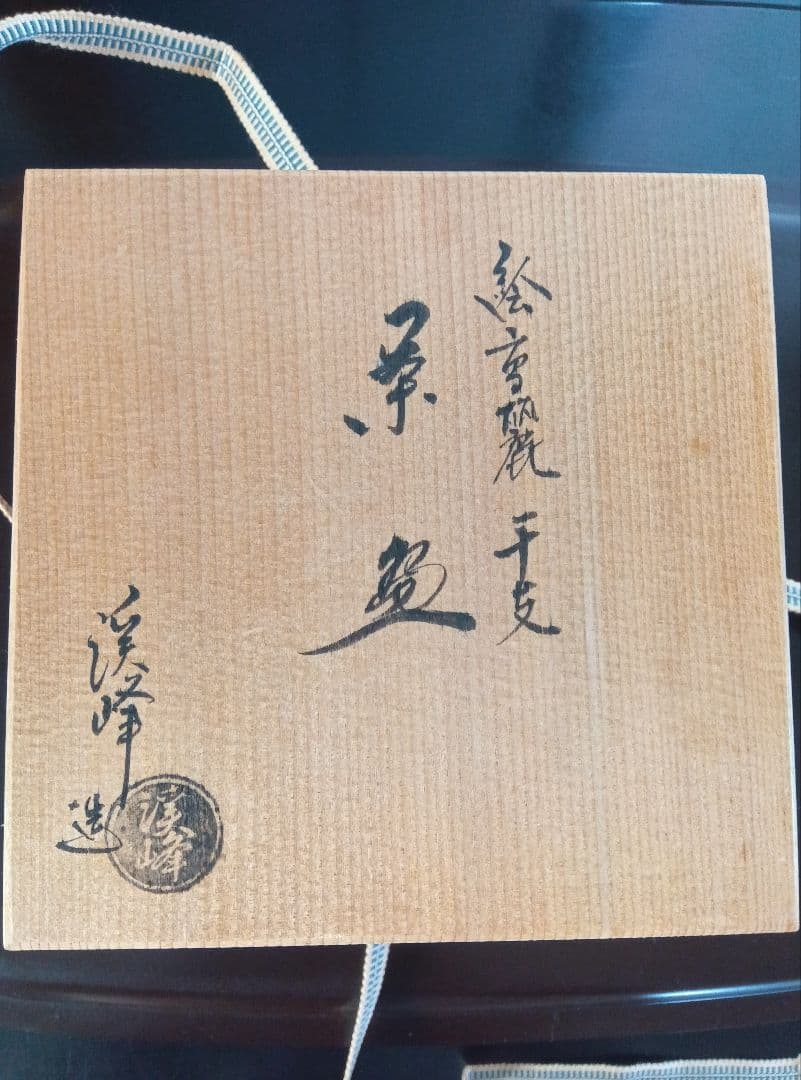 絵高麗 干支
茶碗
渓峰
造
渓峰